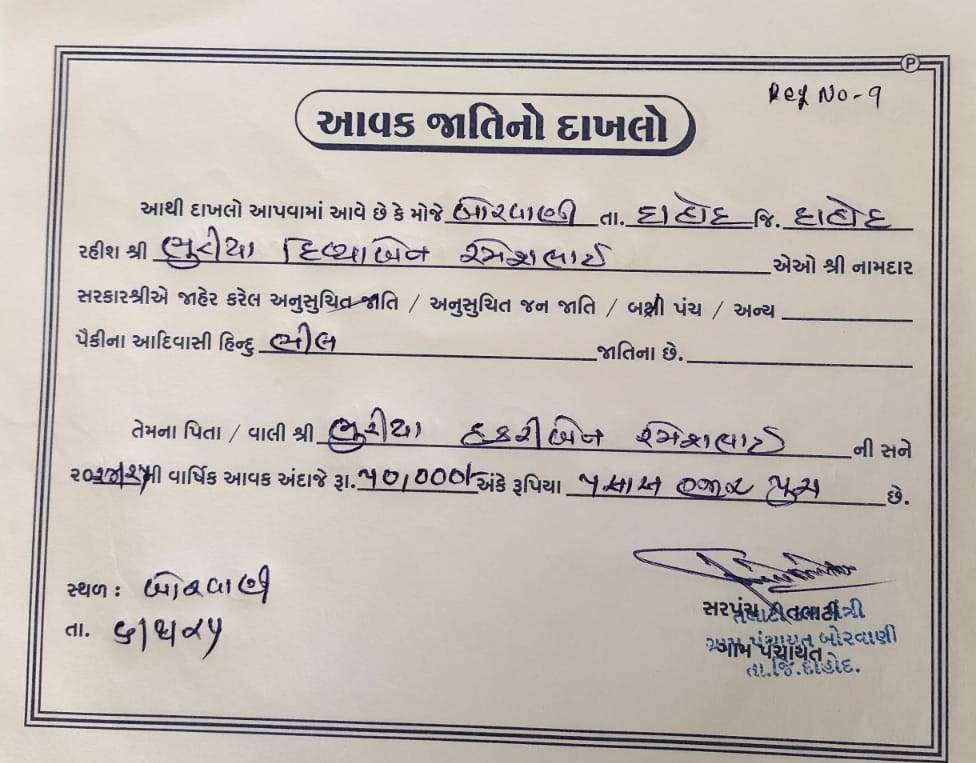 P
Ref No-9
આવક જાતિનો દાખલો
આથી દાખલો આપવામાં આવે છે કે મોજે બોરવાણી તા. દાહોદ જિ. દાહોદ
રહીશ શ્રી ભુરીયા દિવ્યાબેન રમેશભાઈ એઓ શ્રી નામદાર
સરકારશ્રીએ જાહેર કરેલ અનુસુચિત જાતિ / અનુસુચિત જન જાતિ / બક્ષી પંચ / અન્ય
પૈકીના આદિવાસી હિન્દુ ભીલ જાતિના છે.
તેમના પિતા / વાલી શ્રી ભુરીયા રમેશભાઈ ની સને
૨૦૨૪/૨૫ની વાર્ષિક આવક અંદાજે રૂા. ૫૦,૦૦૦/- અંકે રૂપિયા પચાસ હજાર પુરા છે.
સ્થળ : બોરવાણી
તા.
સરપંચ / તલાટી
તલાટી કમ મંત્રી
ગ્રામ પંચાયત બોરવાણી
ગ્રામ પંચાયત
તા.જિ.દાહોદ.